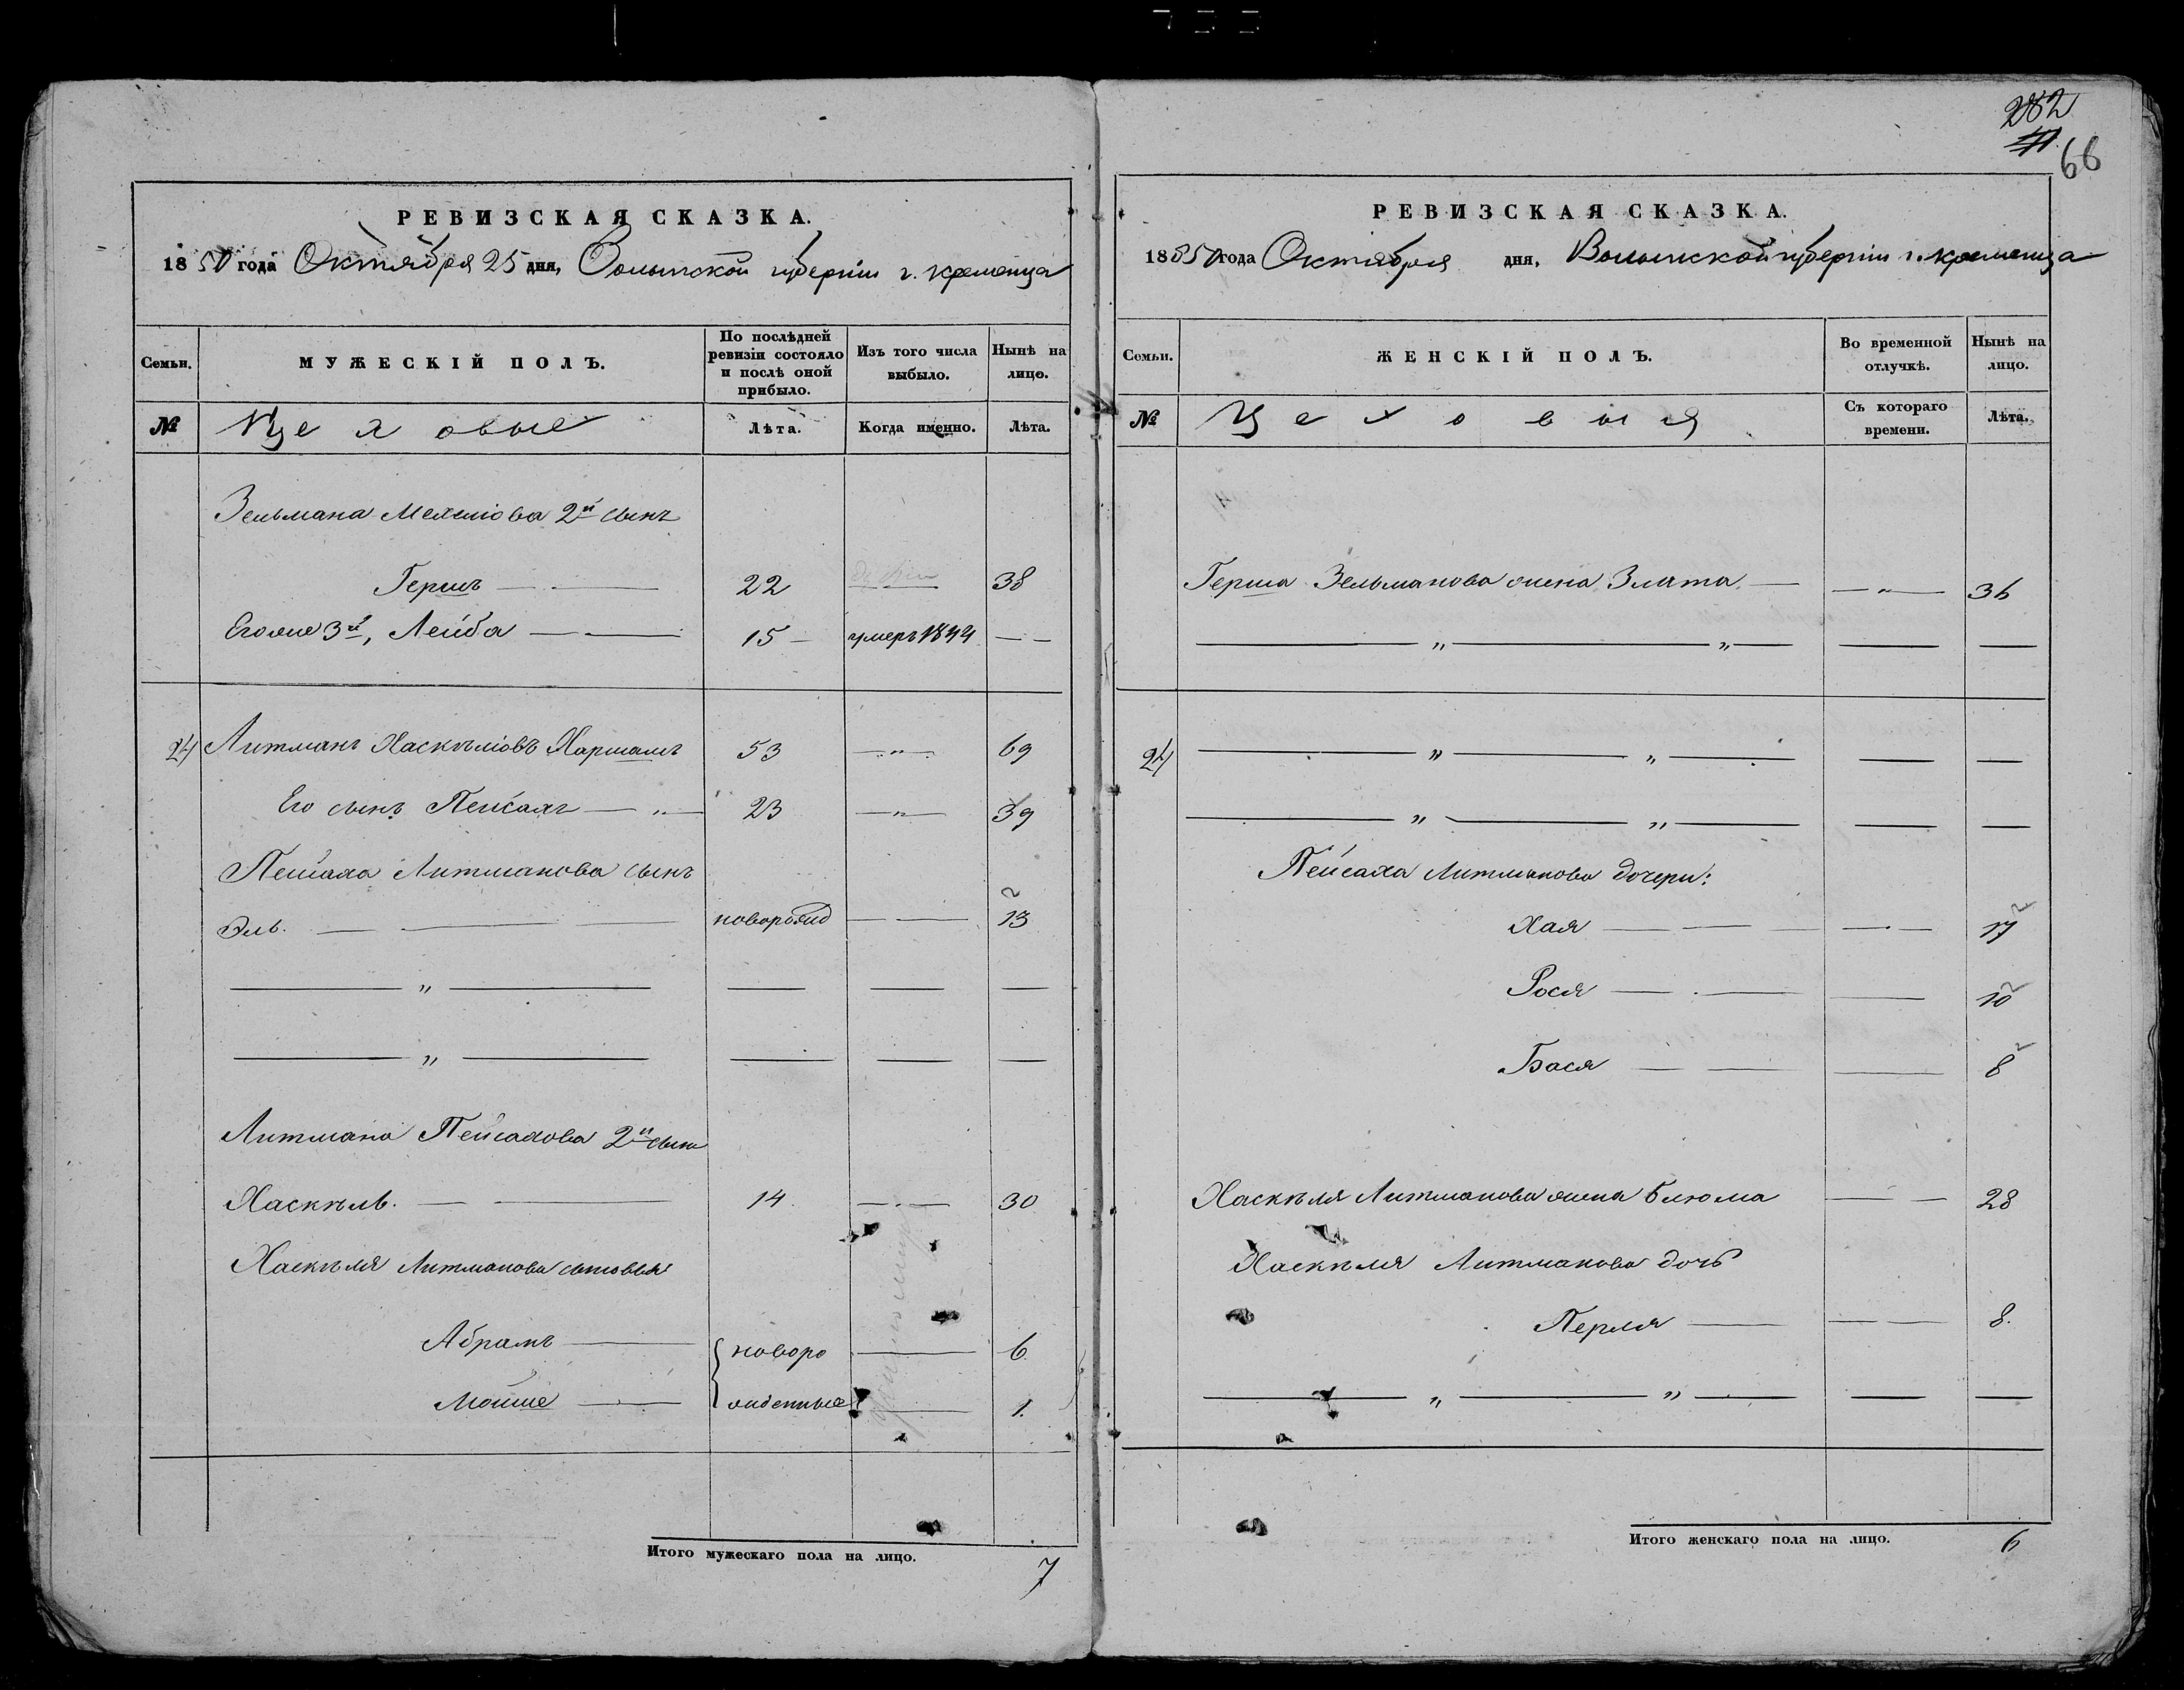 282
66
РЕВИЗСКАЯ СКАЗКА.
1850 года Октября 25 дня, Волынской губернiи г. Кременца
Семьи. МУЖЕСКIЙ ПОЛЪ. По послѣдней ревизiи состояло и послѣ оной прибыло. Изъ того числа выбыло. Нынѣ на лицо.
№ Цеховые Лѣта. Когда именно. Лѣта.
Зельмана Мехелiова 2й сынъ
Гершъ 22 38
Егоже 3й, Лейба 15 умеръ 1844
24 Литманъ Хаскѣлiовъ Харшалъ 53 " 69
Его сынъ Пейсахъ " 23 " 39
Пейсаха Литманова сынъ
Эль. новорожд 13
"
"
Литмана Пейсахова 2й сынъ
Хаскѣль. 14 30
Хаскѣля Литманова сыновья
Абрамъ новоро 6
Мойше жденные 1.
Итого мужескаго пола на лицо. 7
РЕВИЗСКАЯ СКАЗКА.
18850 года Октября дня, Волынской губернiи г. Кременца
Семьи. ЖЕНСКIЙ ПОЛЪ. Во временной отлучкѣ. Нынѣ на лицо.
№ Цеховыя Съ котораго времени. Лѣта.
Герша Зельманова жена Злата " 36
" "
24 " "
" "
Пейсаха Литманова дочери:
Хая 17
Рося 10
Бася 8
Хаскѣля Литманова жена Блюма 28
Хаскѣля Литманова дочь
Перля 8.
" "
Итого женскаго пола на лицо. 6